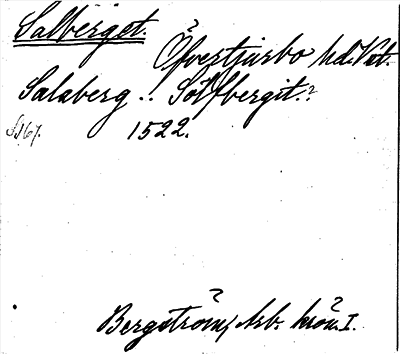 Salberget.
Öfvertjurbo hd. Vstm.
Salaberg .. Solfbergit.?
S. 167. 1522.
Bergström, Arb. krön. I.